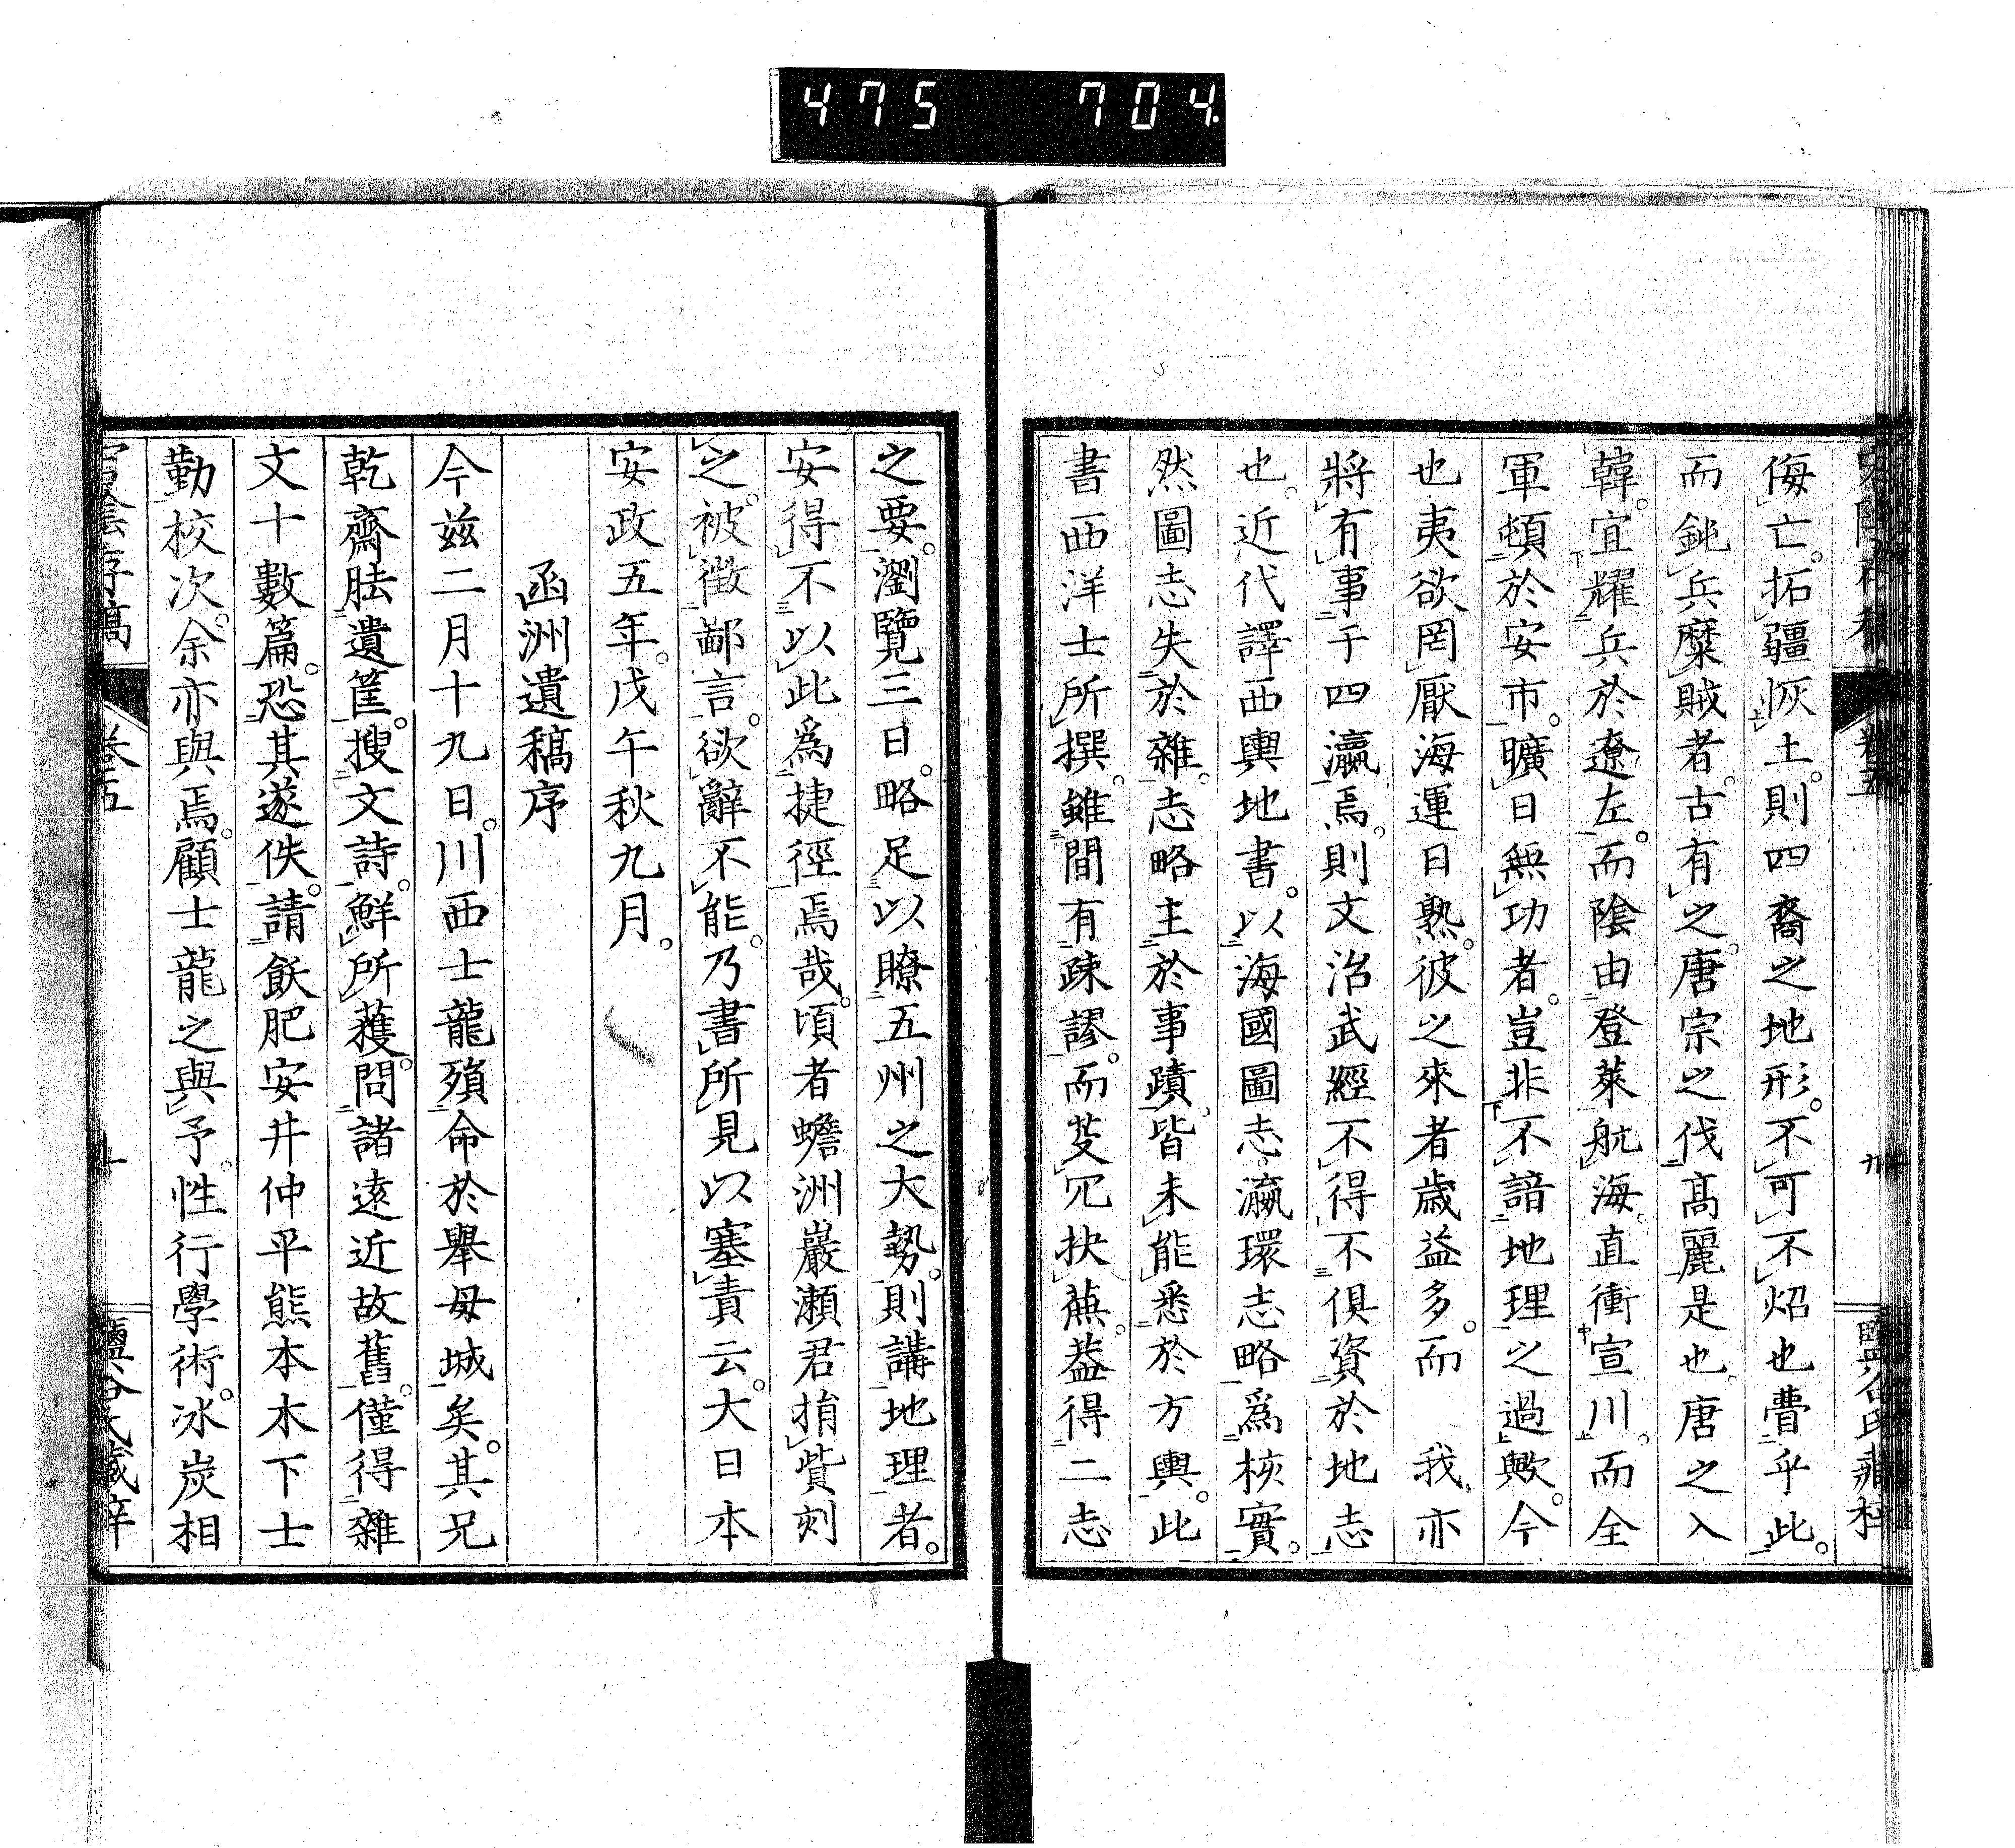 475 704
侮亡。拓疆恢土。則四裔之地形。不可不炤也瞢乎此。
而鈍兵糜賊者。古有之。唐宗之伐髙麗是也。唐之入
韓。宜耀兵於遼左。而陰由登萊航海。直衝宣川。而全
軍頓於安市。曠日無功者。豈非不諳地理之過歟。今
也夷欲罔厭海運日熟。彼之來者歲益多。而 我亦
將有事于四瀛焉。則文治武經不得不俱資於地志
也。近代譯西輿地書。以海國圖志瀛環志略爲核實。
然圖志失於雜。志略主於事蹟。皆未能悉於方輿。此
書西洋士所撰。雖間有疎謬。而芟冗抉蕪。葢得二志
之要。瀏覽三日。略足以瞭五州之大勢。則講地理者。
安得不以此爲捷徑焉哉。頃者蟾洲巖瀬君捐貲刻
之。被徵鄙言。欲辭不能。乃書所見以塞責云。大日本
安政五年。戊午秋九月。
函洲遺稿序
今玆二月十九日。川西士龍殞命於舉母城矣。其兄
乾齋胠遺筐。搜文詩。鮮所獲。問諸遠近故舊。僅得雜
文十數篇。恐其遂佚。請飫肥安井仲平熊本木下士
勤校次。余亦與焉。顧士龍之與予。性行學術。冰炭相
宕陰存稿 卷五 十 鹽谷氏藏梓